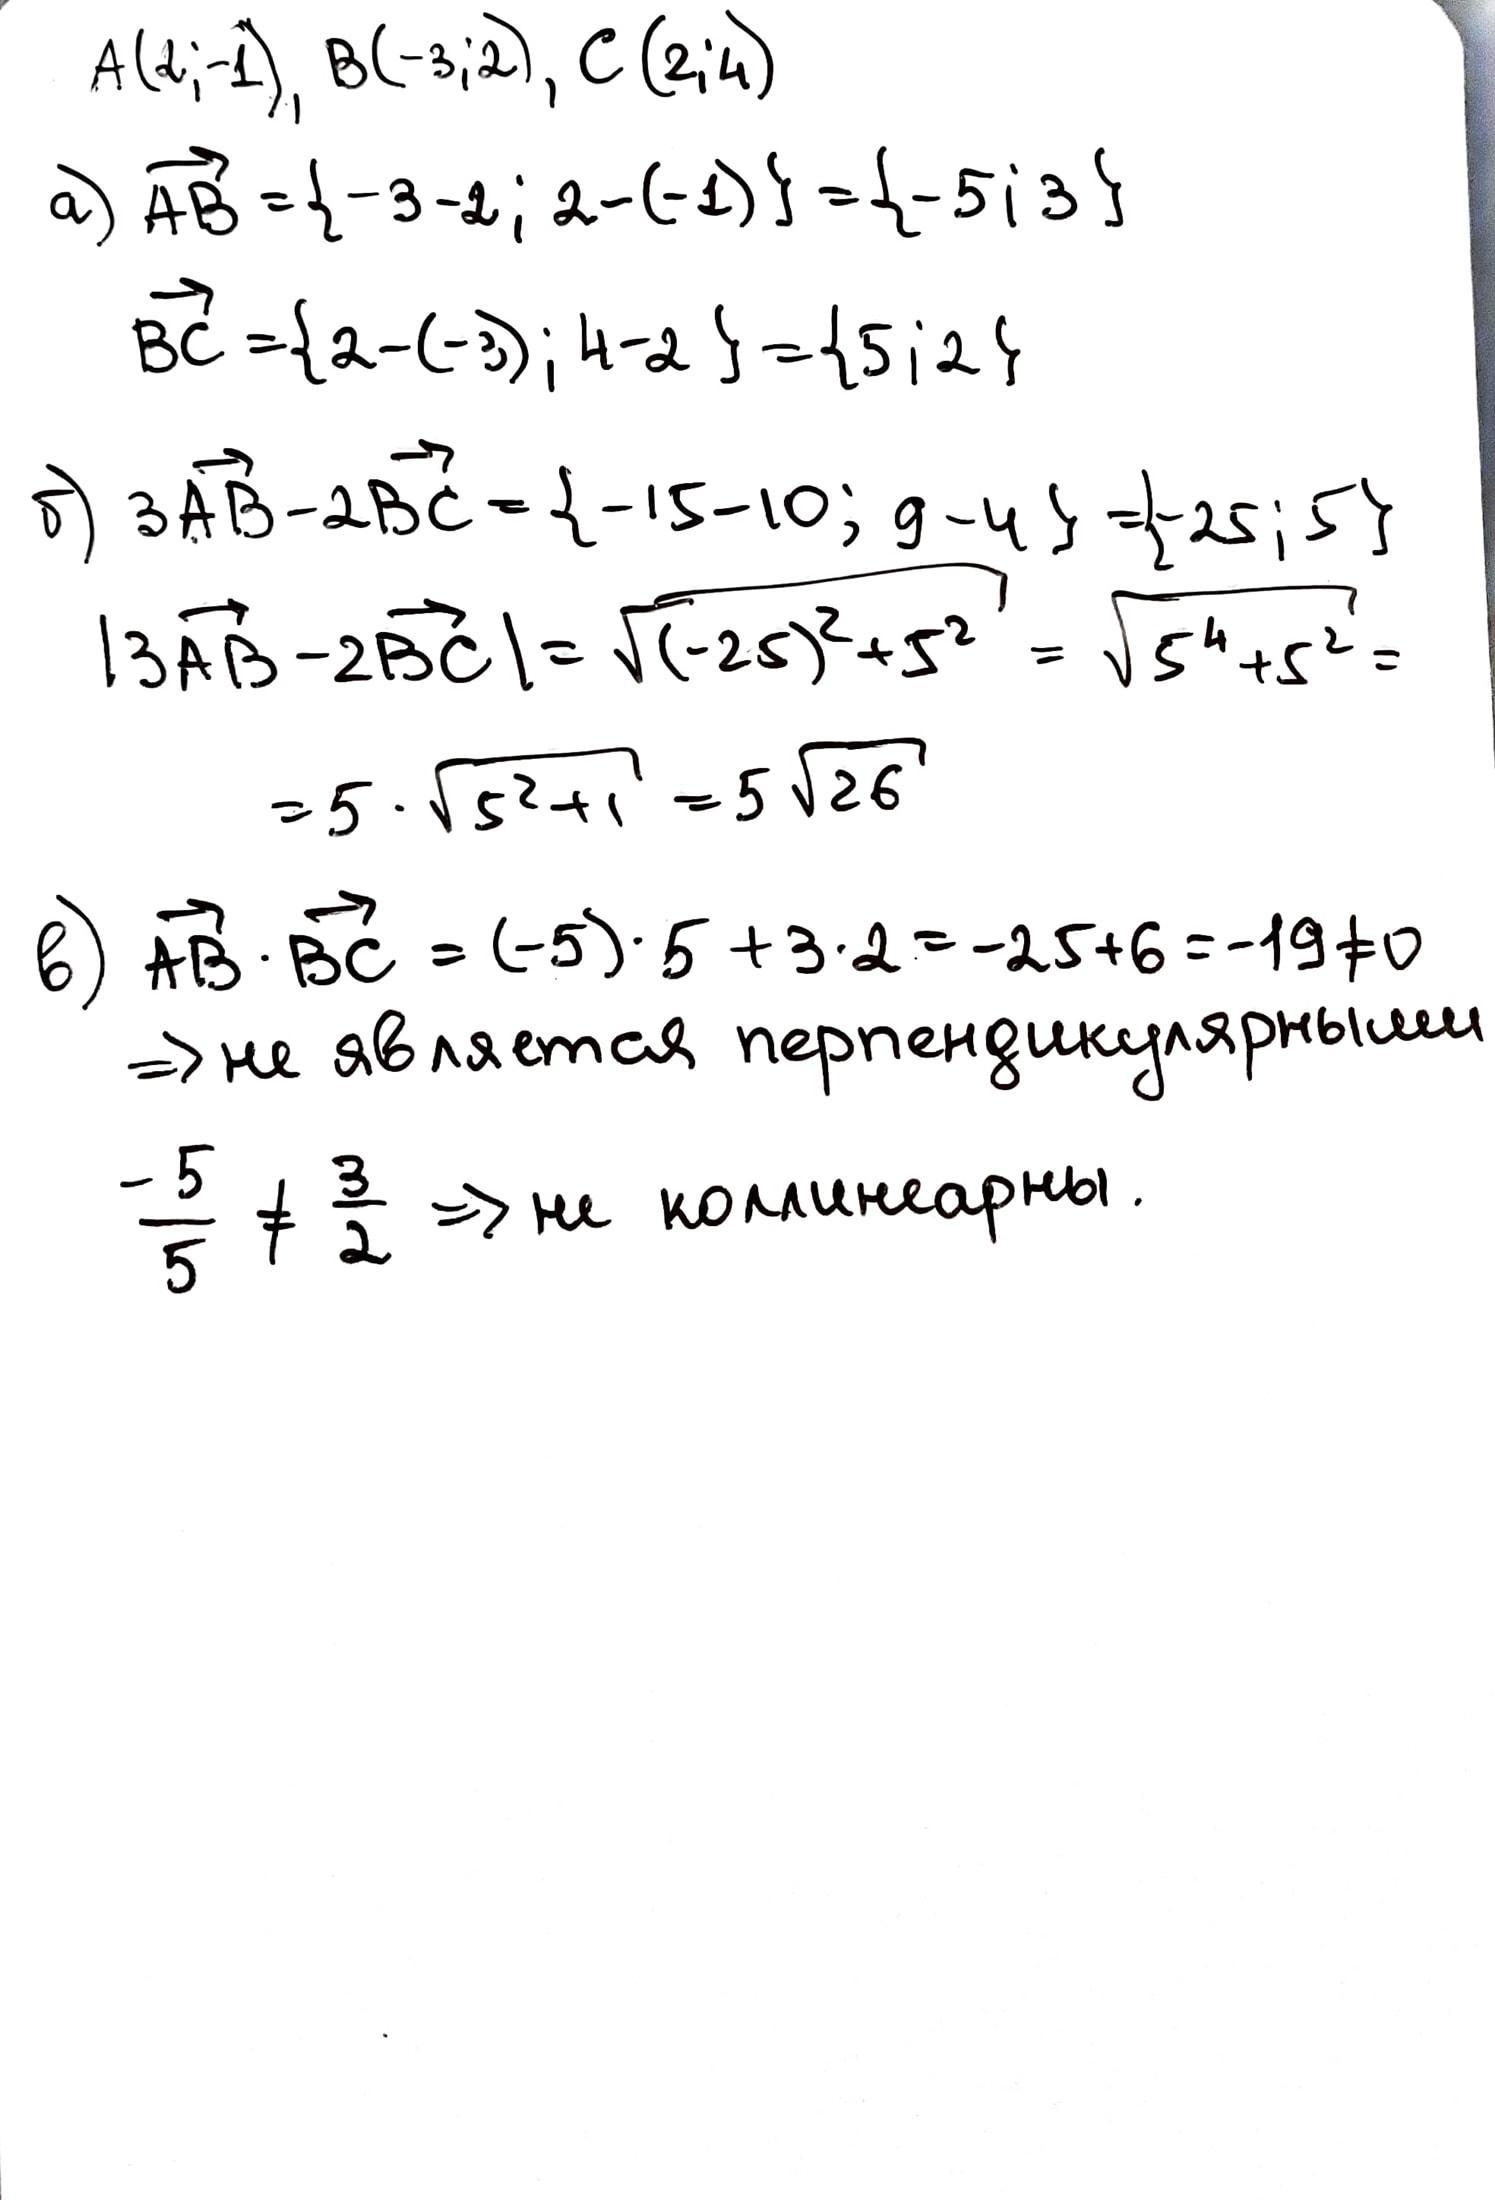 A(2;-1), B(-3;2), C(2;4)
а) AB⃗ = {-3-2; 2-(-1)} = {-5;3}
BC⃗ = {2-(-3); 4-2} = {5;2}
б) 3AB⃗ - 2BC⃗ = {-15-10; 9-4} = {-25;5}
|3AB⃗ - 2BC⃗| = √((-25)²+5²) = √(5⁴+5²) =
= 5 · √(5²+1) = 5√26
в) AB⃗ · BC⃗ = (-5) · 5 + 3 · 2 = -25+6 = -19 ≠ 0
=> не является перпендикулярными
-5/5 ≠ 3/2 => не коллинеарны.